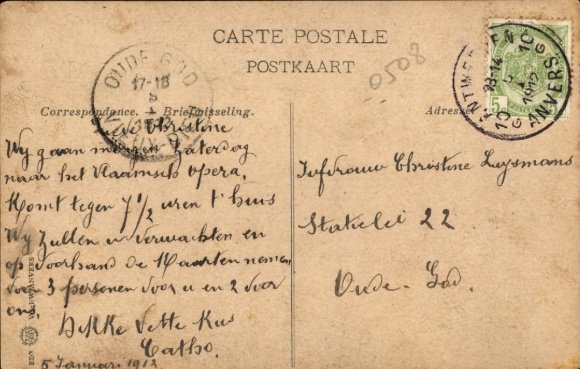 CARTE POSTALE
POSTKAART
0508
Correspondance. Briefwisseling.
Adres
Lieve Christine
Wy gaan morgen Zaterdag
naar het Vlaamsch opera.
Komt tegen 7 1/2 uren t'huis
Wy zullen u verwachten en
op voorhand de Kaarten nemen
voor 3 personen voor u en 2 voor
ons.
Dikke Vette Kus
Catho.
5 Januari 1912
Jufdrouw Christine Luysmans
Statielei 22
Oude-God.
OUDE-GOD
17-18
ANTWERPEN 10
13-14
1912
10 G ANVERS G
5
EDN
ANVERS